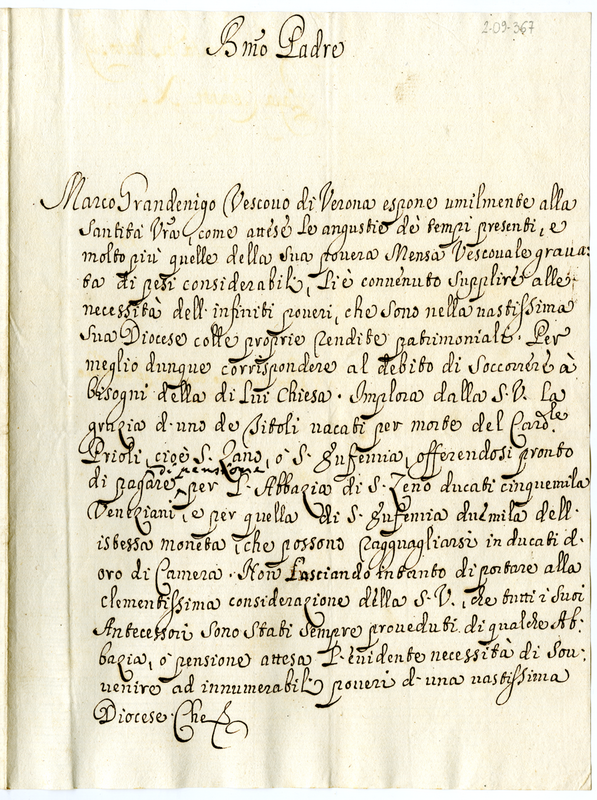 2-09-367
Bmo Padre
Marco Grandenigo Vescovo di Verona espone umilmente alla
Santità Vra, come attese le angustie de tempi presenti, e
molto più quelle della sua povera Mensa Vescovale grava:
ta di pesi considerabili, li è convenuto supplire alle
necessità dell'infiniti poveri, che sono nella vastissima
sua Diocese colle proprie rendite patrimoniali. Per
meglio dunque corrispondere al debito di soccorrere à
bisogni della di Lui Chiesa. Implora dalla S. V. La
grazia d'uno de Titoli vacati per morte del Cardle
Prioli, cioè S. Zeno, ò S. Eufemia, offerendosi pronto
di pagare di pensione per l'Abbazia di S. Zeno ducati cinquemila
Veneziani, e per quella di S. Eufemia duemila dell'
istessa moneta, che possono ragguagliarsi in ducati d'
oro di Camera. Non lasciando intanto di portare alla
clementissima considerazione della S. V., che tutti i suoi
Antecessori sono stati sempre proveduti di qualche Ab:
bazia, ò pensione attesa l'evidente necessità di sov:
venire ad innumerabili poveri d'una vastissima
Diocese. Che